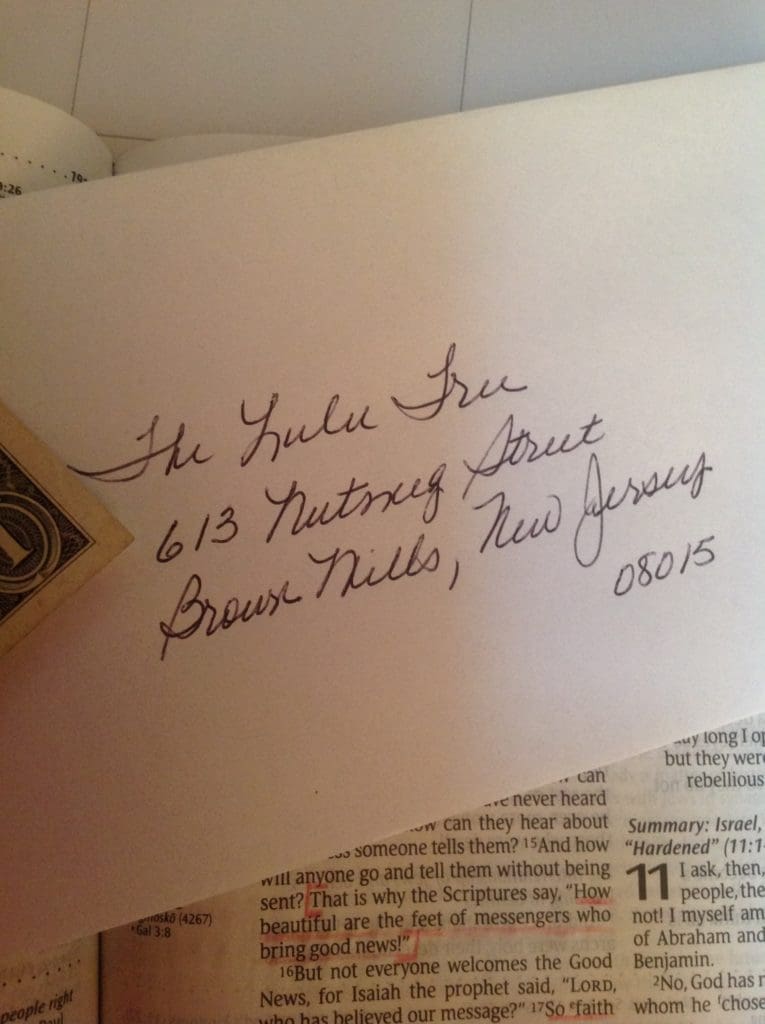 9:26
79
1
The Lulu Tree
613 Nutmeg Street
Brown Mills, New Jersey
08015
can
never heard
can they hear about
someone tells them? ¹⁵And how
will anyone go and tell them without being
sent? That is why the Scriptures say, “How
beautiful are the feet of messengers who
bring good news!”
¹⁶But not everyone welcomes the Good
News, for Isaiah the prophet said, “LORD,
who has believed our message?” ¹⁷So faith
(4267)
Gal 3:8
people right
Paul
long I
but they were
rebellious
Summary: Israel,
“Hardened” (11:1-
11 I ask, then,
people, the
not! I myself am
of Abraham and
Benjamin.
²No, God has
whom he chose